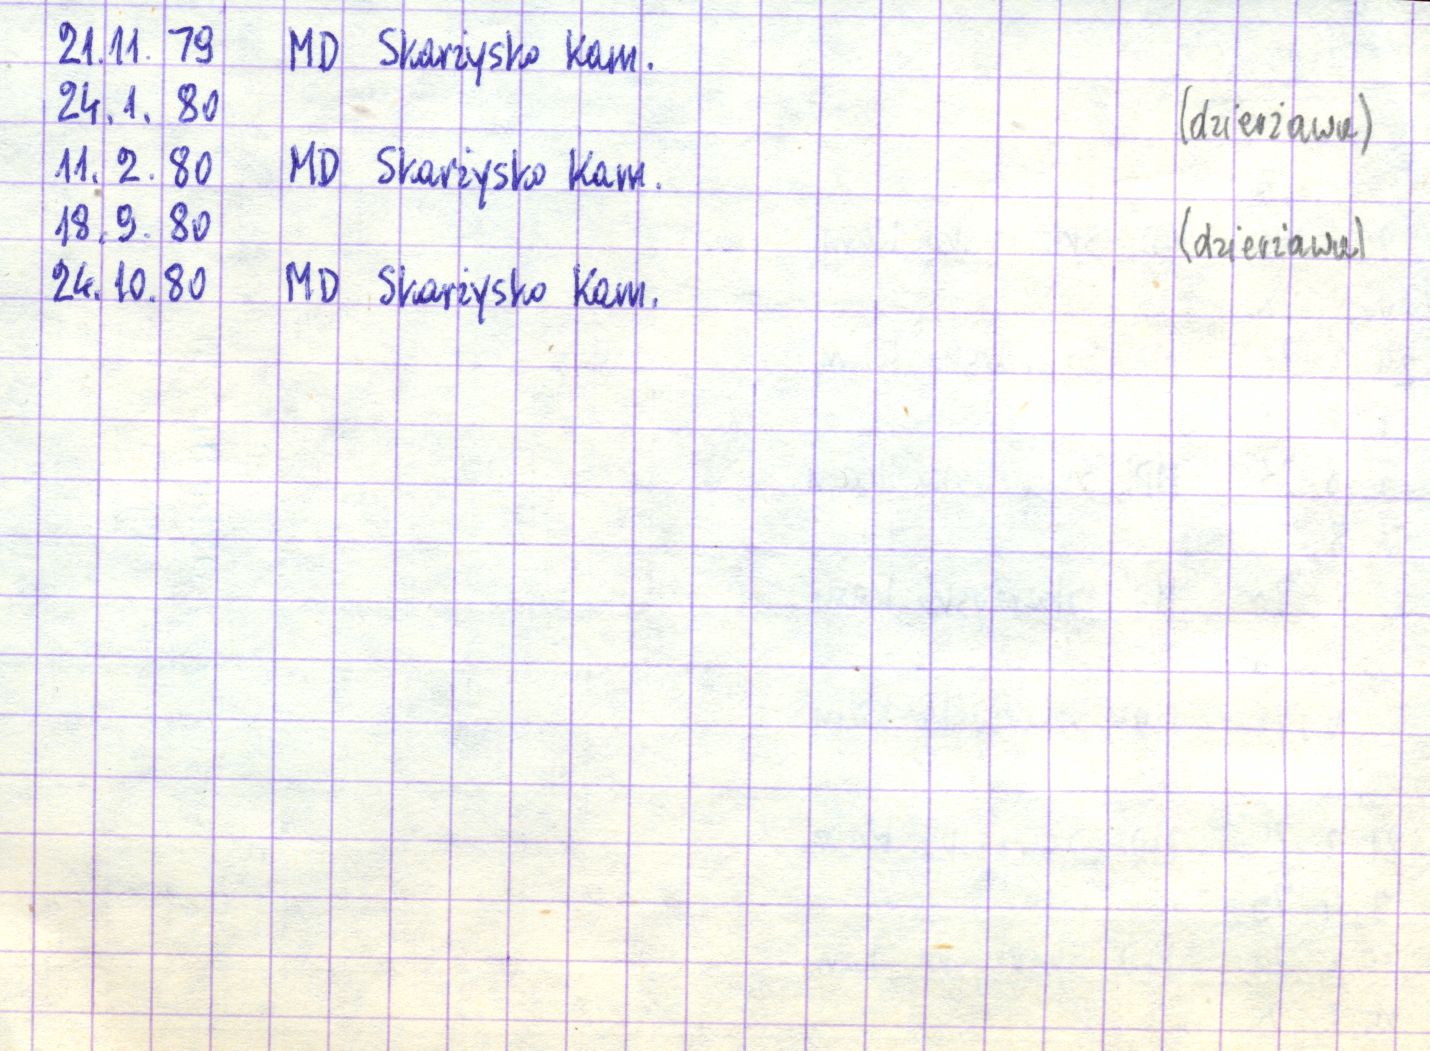 21.11.79 MD Skarżysko Kam.
24.1.80 (dzierżawa)
11.2.80 MD Skarżysko Kam.
18.9.80 (dzierżawa)
24.10.80 MD Skarżysko Kam.